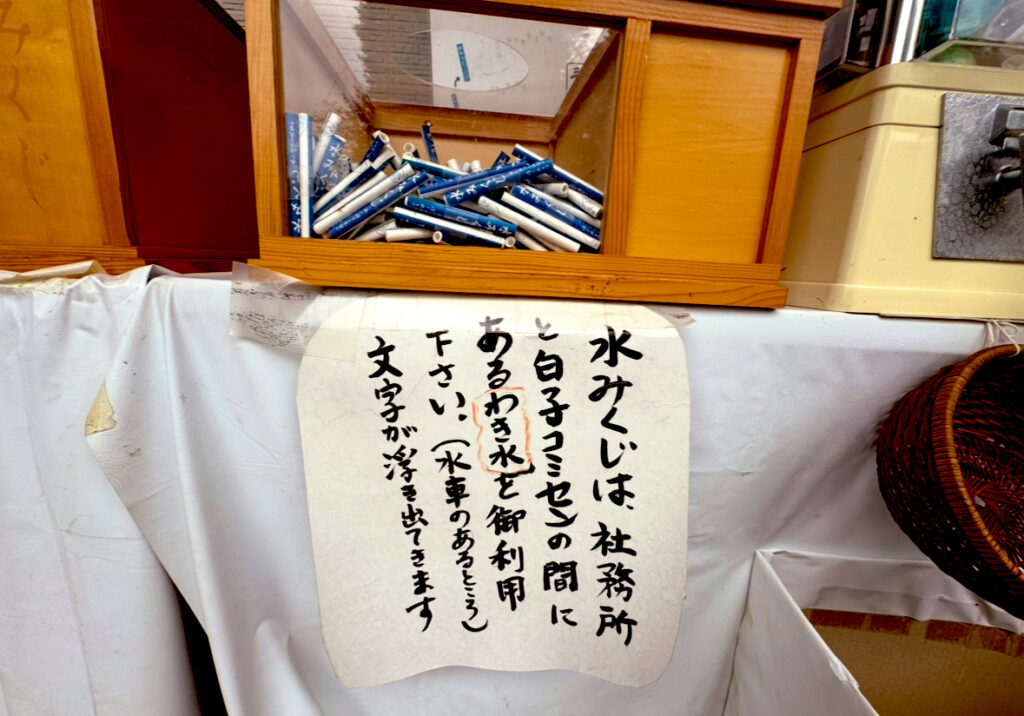 水みくじは、社務所
と白子コミセンの間に
あるわき水を御利用
下さい。(水車のあるところ)
文字が浮き出てきます
みくじ